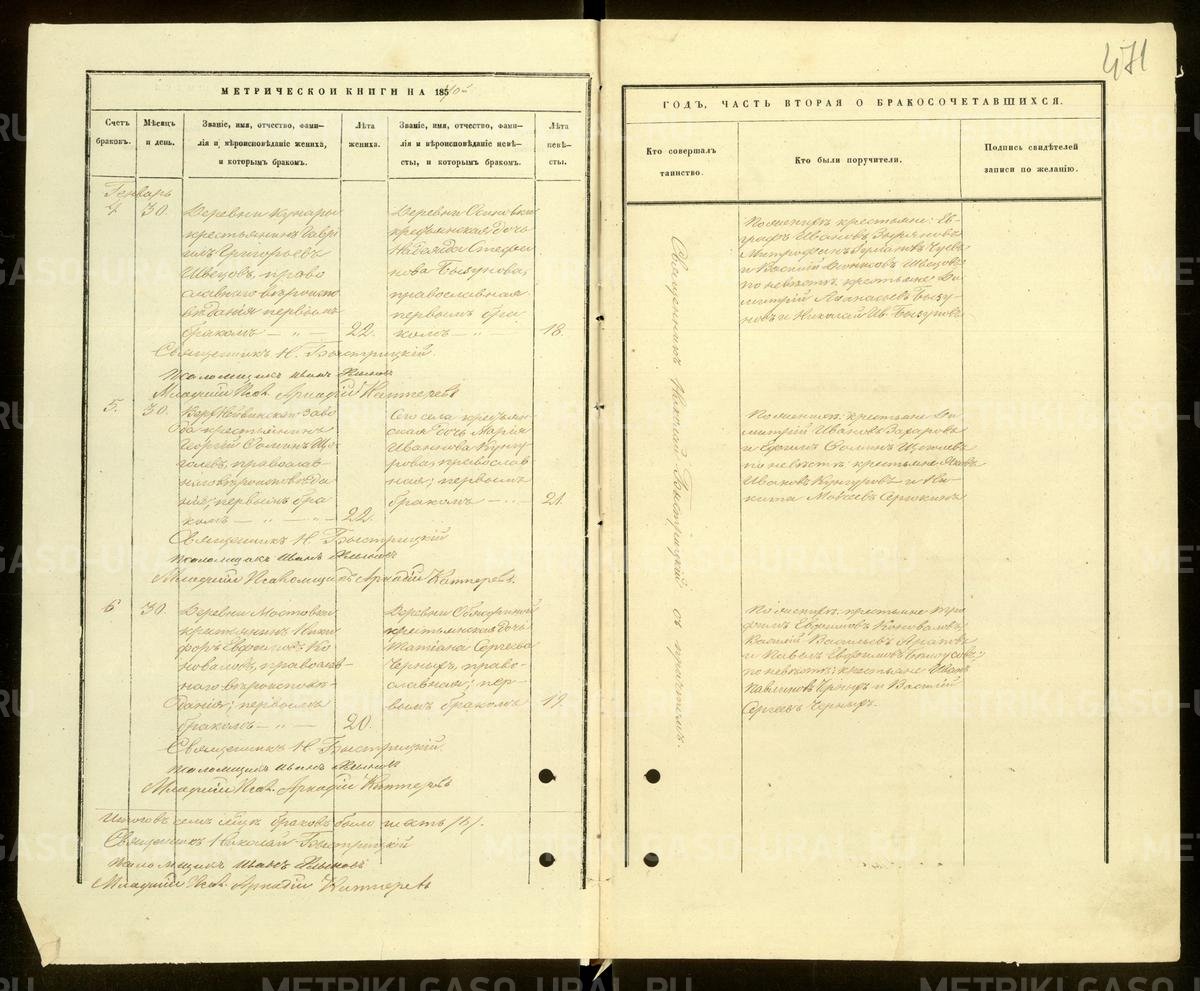 471
МЕТРИЧЕСКОИ КНИГИ НА 185
Счетъ браковъ.
Мѣсяцъ и день.
Званіе, имя, отчество, фами-
лія и вѣроисповѣданіе жениха,
и которымъ бракомъ.
Лѣта жениха.
Званіе, имя, отчество, фами-
лія и вѣроисповѣданіе невѣ-
сты, и которымъ бракомъ.
Лѣта невѣ-
сты.
Генварь
4
30.
Деревни Кунары
крестьянинъ Гаврі
илъ Григорьевъ
Швецовъ, право
славнаго вѣроиспо
вѣданія первымъ
бракомъ — „ —
22.
Деревни Осиновки
крестьянская дочь
Надежда Стефа
нова Бызунова,
православная
первымъ бра
комъ — „
18.
Священникъ Н. Быстрицкій.
Псаломщикъ Иванъ
Младшій Псал. Аркадій
5.
30.
Верх Нейвинскаго заво
да крестьянинъ
Георгій Фоминъ Що
голевъ, православ-
наго вѣроисповѣда
нія; первымъ бра
комъ — „ —
22.
Сего села крестьян-
ская дочь Марія
Иванова Кунгу
рова, православ
ная; первымъ
бракомъ
21.
Священникъ Н. Быстрицкій
Псаломщикъ Иванъ
Младшій Псаломщикъ Аркадій
6
30.
Деревни Мостовки
крестьянинъ Ники
форъ Евфимовъ Ко
новаловъ, православ-
наго вѣроисповѣ-
данія; первымъ
бракомъ — „ —
20.
Деревни
крестьянская дочь
Татіана Сергѣева
Черныхъ, право-
славная; пер-
вымъ бракомъ
19.
Священникъ Н. Быстрицкій.
Псаломщикъ Иванъ
Младшій Псал. Аркадій
браковъ было шесть /6/.
Священникъ Николай Быстрицкій
Псаломщикъ Иванъ
Младшій Псал. Аркадій
ГОДЪ, ЧАСТЬ ВТОРАЯ О БРАКОСОЧЕТАВШИХСЯ.
Кто совершалъ
таинство.
Кто были поручители.
Подпись свидѣтелей
записи по желанію.
Священникъ Николай Быстрицкій съ причтомъ.
По женихѣ крестьяне: Ев
графъ Ивановъ Зыряновъ
Митрофанъ
и Василій Швецовъ
по невѣстѣ крестьяне Ди
митрій Аѳанасьевъ Бызу
новъ и Николай Ив. Бызуновъ
По женихѣ крестьяне Ди
митрій Ивановъ Захаровъ
и Ефимъ Фоминъ Щеголевъ
по невѣстѣ крестьяне Яковъ
Ивановъ Кунгуровъ и Ни
кита
По женихѣ крестьяне Тро
фимъ Евфимовъ Коноваловъ,
Василій Васильевъ
и Павелъ Евфимовъ Бѣлоусовъ;
по невѣстѣ; крестьяне Иванъ
Черныхъ и Василій
Сергѣевъ Черныхъ.
METRIKI.GASO-URAL.RU